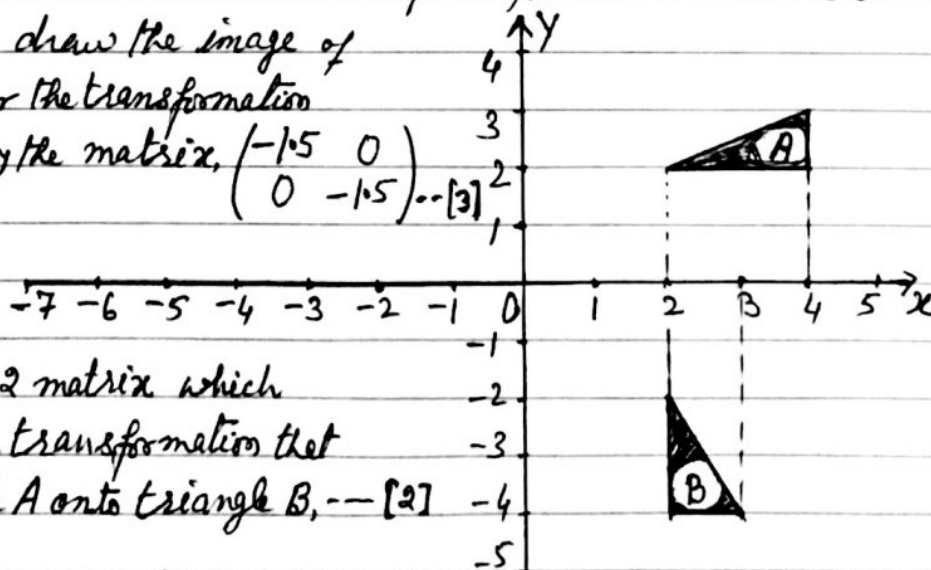 draw the image of
the transformation
the matrix, (-1.5 0
0 -1.5) -- [3]
2 matrix which
transformation that
A onto triangle B, --- [2]
Y
4
3
2
1
A
-7 -6 -5 -4 -3 -2 -1 0 1 2 3 4 5 x
-1
-2
-3
-4
-5
B